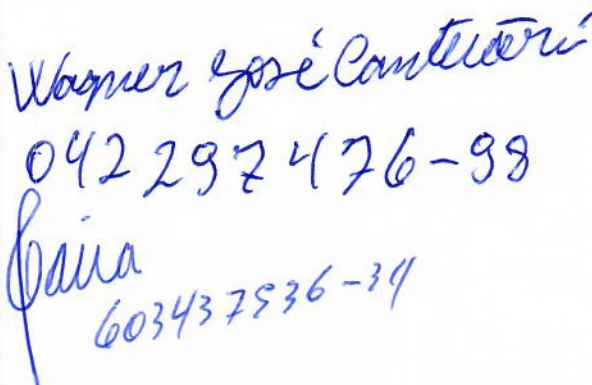 Wagner José Cantuári
042297476-98
603437536-34